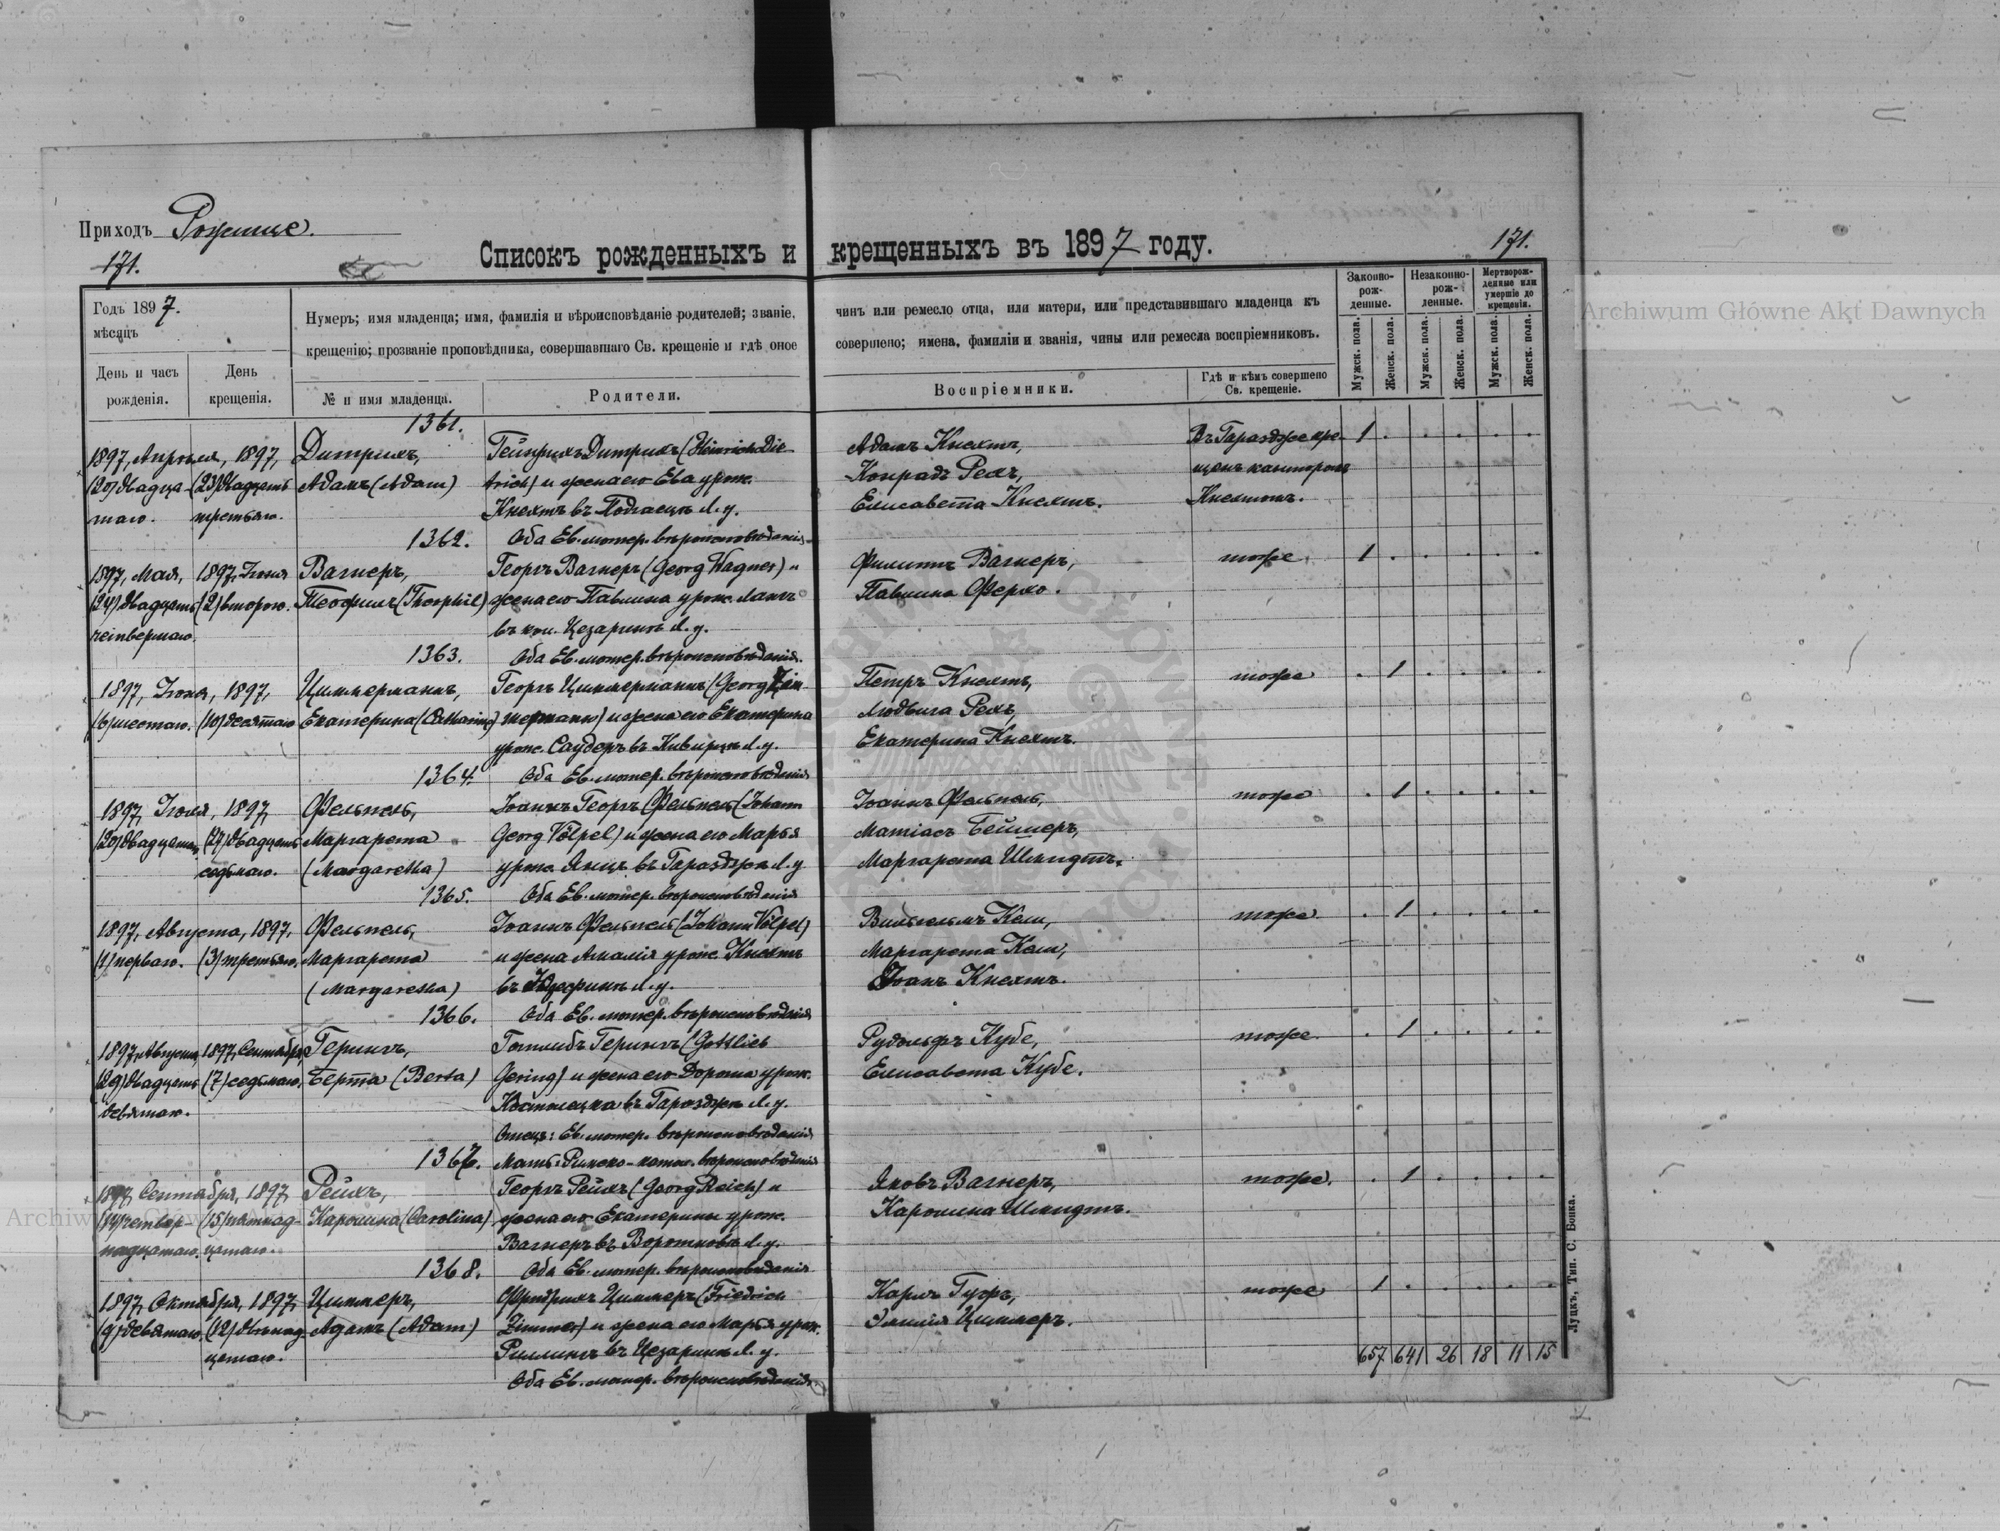 Приходъ Рожище.
171.
Списокъ рожденныхъ и крещенныхъ въ 1897 году.
171.
Годъ 1897.
мѣсяцъ
День и часъ рожденія.
День крещенія.
Нумеръ; имя младенца; имя, фамилія и вѣроисповѣданіе родителей; званіе, чинъ или ремесло отца, или матери, или представившаго младенца къ
крещенію; прозваніе проповѣдника, совершавшаго Св. крещеніе и гдѣ оное совершено; имена, фамиліи и званія, чины или ремесла воспріемниковъ.
№ и имя младенца.
Родители.
Воспріемники.
Гдѣ и кѣмъ совершено Св. крещеніе.
Законно-рож-денные.
Незаконно-рож-денные.
Мертворож-денные или умершіе до крещенія.
Мужск. пола.
Женск. пола.
Мужск. пола.
Женск. пола.
Мужск. пола.
Женск. пола.
1361.
1897, Апрѣля, 1897, Дитрихъ, Гейнрихъ Дитрихъ (Heinrich Die- Адамъ Кнехтъ, Въ Гараздже кре- 1
(20) двадца- (23) двадцать Адамъ (Adam) trich) и жена его Ева урож. Конрадъ Рехъ, щенъ канторомъ
таго. третьяго. Кнехтъ въ Подгаецъ Л. у. Елисавета Кнехтъ. Кнехтомъ.
1362. Оба Ев. лютер. вѣроисповѣданія
1897, Мая, 1897, Іюня Вагнеръ, Георгъ Вагнеръ (Georg Wagner) и Филиппъ Вагнеръ, тоже 1
(24) двадцать (2) второго. Теофилъ (Theophil) жена его Павлина урож. Лангъ Павлина Ферхо.
четвертаго. въ кол. Цезаринъ Л. у.
1363. Оба Ев. лютер. вѣроисповѣданія.
1897, Іюня, 1897, Циммерманнъ, Георгъ Циммерманнъ (Georg Zim- Петръ Кнехтъ, тоже 1
(6) шестаго. (10) десятаго Екатерина (Catharina) mermann) и жена его Екатерина Людвига Рехъ,
урож. Саудеръ въ Киверцы Л. у. Екатерина Кнехтъ.
1364. Оба Ев. лютер. вѣроисповѣданія
1897, Іюля, 1897, Фельпель, Іоаннъ Георгъ Фельпель (Johann Іоаннъ Фельпель, тоже 1
(20) двадцатаго, (27) двадцать Маргарета Georg Völpel) и жена его Марья Матіасъ Беймлеръ,
седьмаго. (Margaretha) урож. Янцъ въ Гараздже Л. у. Маргарета Шмидтъ.
1365. Оба Ев. лютер. вѣроисповѣданія
1897, Августа, 1897, Фельпель, Іоаннъ Фельпель (Johann Völpel) Вильгельмъ Келш, тоже 1
(1) перваго. (3) третьяго. Маргарета и жена Амалія урож. Кнехтъ Маргарета Келш,
(Margaretha) въ Л. у. Іоанъ Кнехтъ.
1366. Оба Ев. лютер. вѣроисповѣданія
1897, Августа, 1897, Сентября, Герингъ, Готлибъ Герингъ (Gottlieb Рудольфъ Кубе, тоже 1
(29) двадцать (7) седьмаго. Берта (Berta) Gering) и жена его Дорота урож. Елисавета Кубе.
девятаго. въ Гараздже Л. у.
Отецъ: Ев. лютер. вѣроисповѣданія
1367. Мать: Римско-катол. вѣроисповѣданія
1897, Сентября, 1897 Рейхъ, Георгъ Рейхъ (Georg Reich) и Яковъ Вагнеръ, тоже. 1
(14) четыр- (15) пятнад- Каролина (Carolina) жена его Екатерины урож. Каролина Шмидтъ.
надцатаго. цатаго. Вагнеръ въ Воротневъ Л. у.
1368. Оба Ев. лютер. вѣроисповѣданія
1897, Октября, 1897, Циммеръ, Фридрихъ Циммеръ (Friedrich Карлъ Гуфъ, тоже 1
(9) девятаго. (12) двѣнад- Адамъ (Adam) Zimmer) и жена его Марья урож. Эмилія Циммеръ.
цатаго. Риллингъ въ Цезаринъ Л. у.
657 641 26 18 11 15
Оба Ев. лютер. вѣроисповѣданія
Луцкъ, Тип. С. Бонка.
Archiwum Główne Akt Dawnych